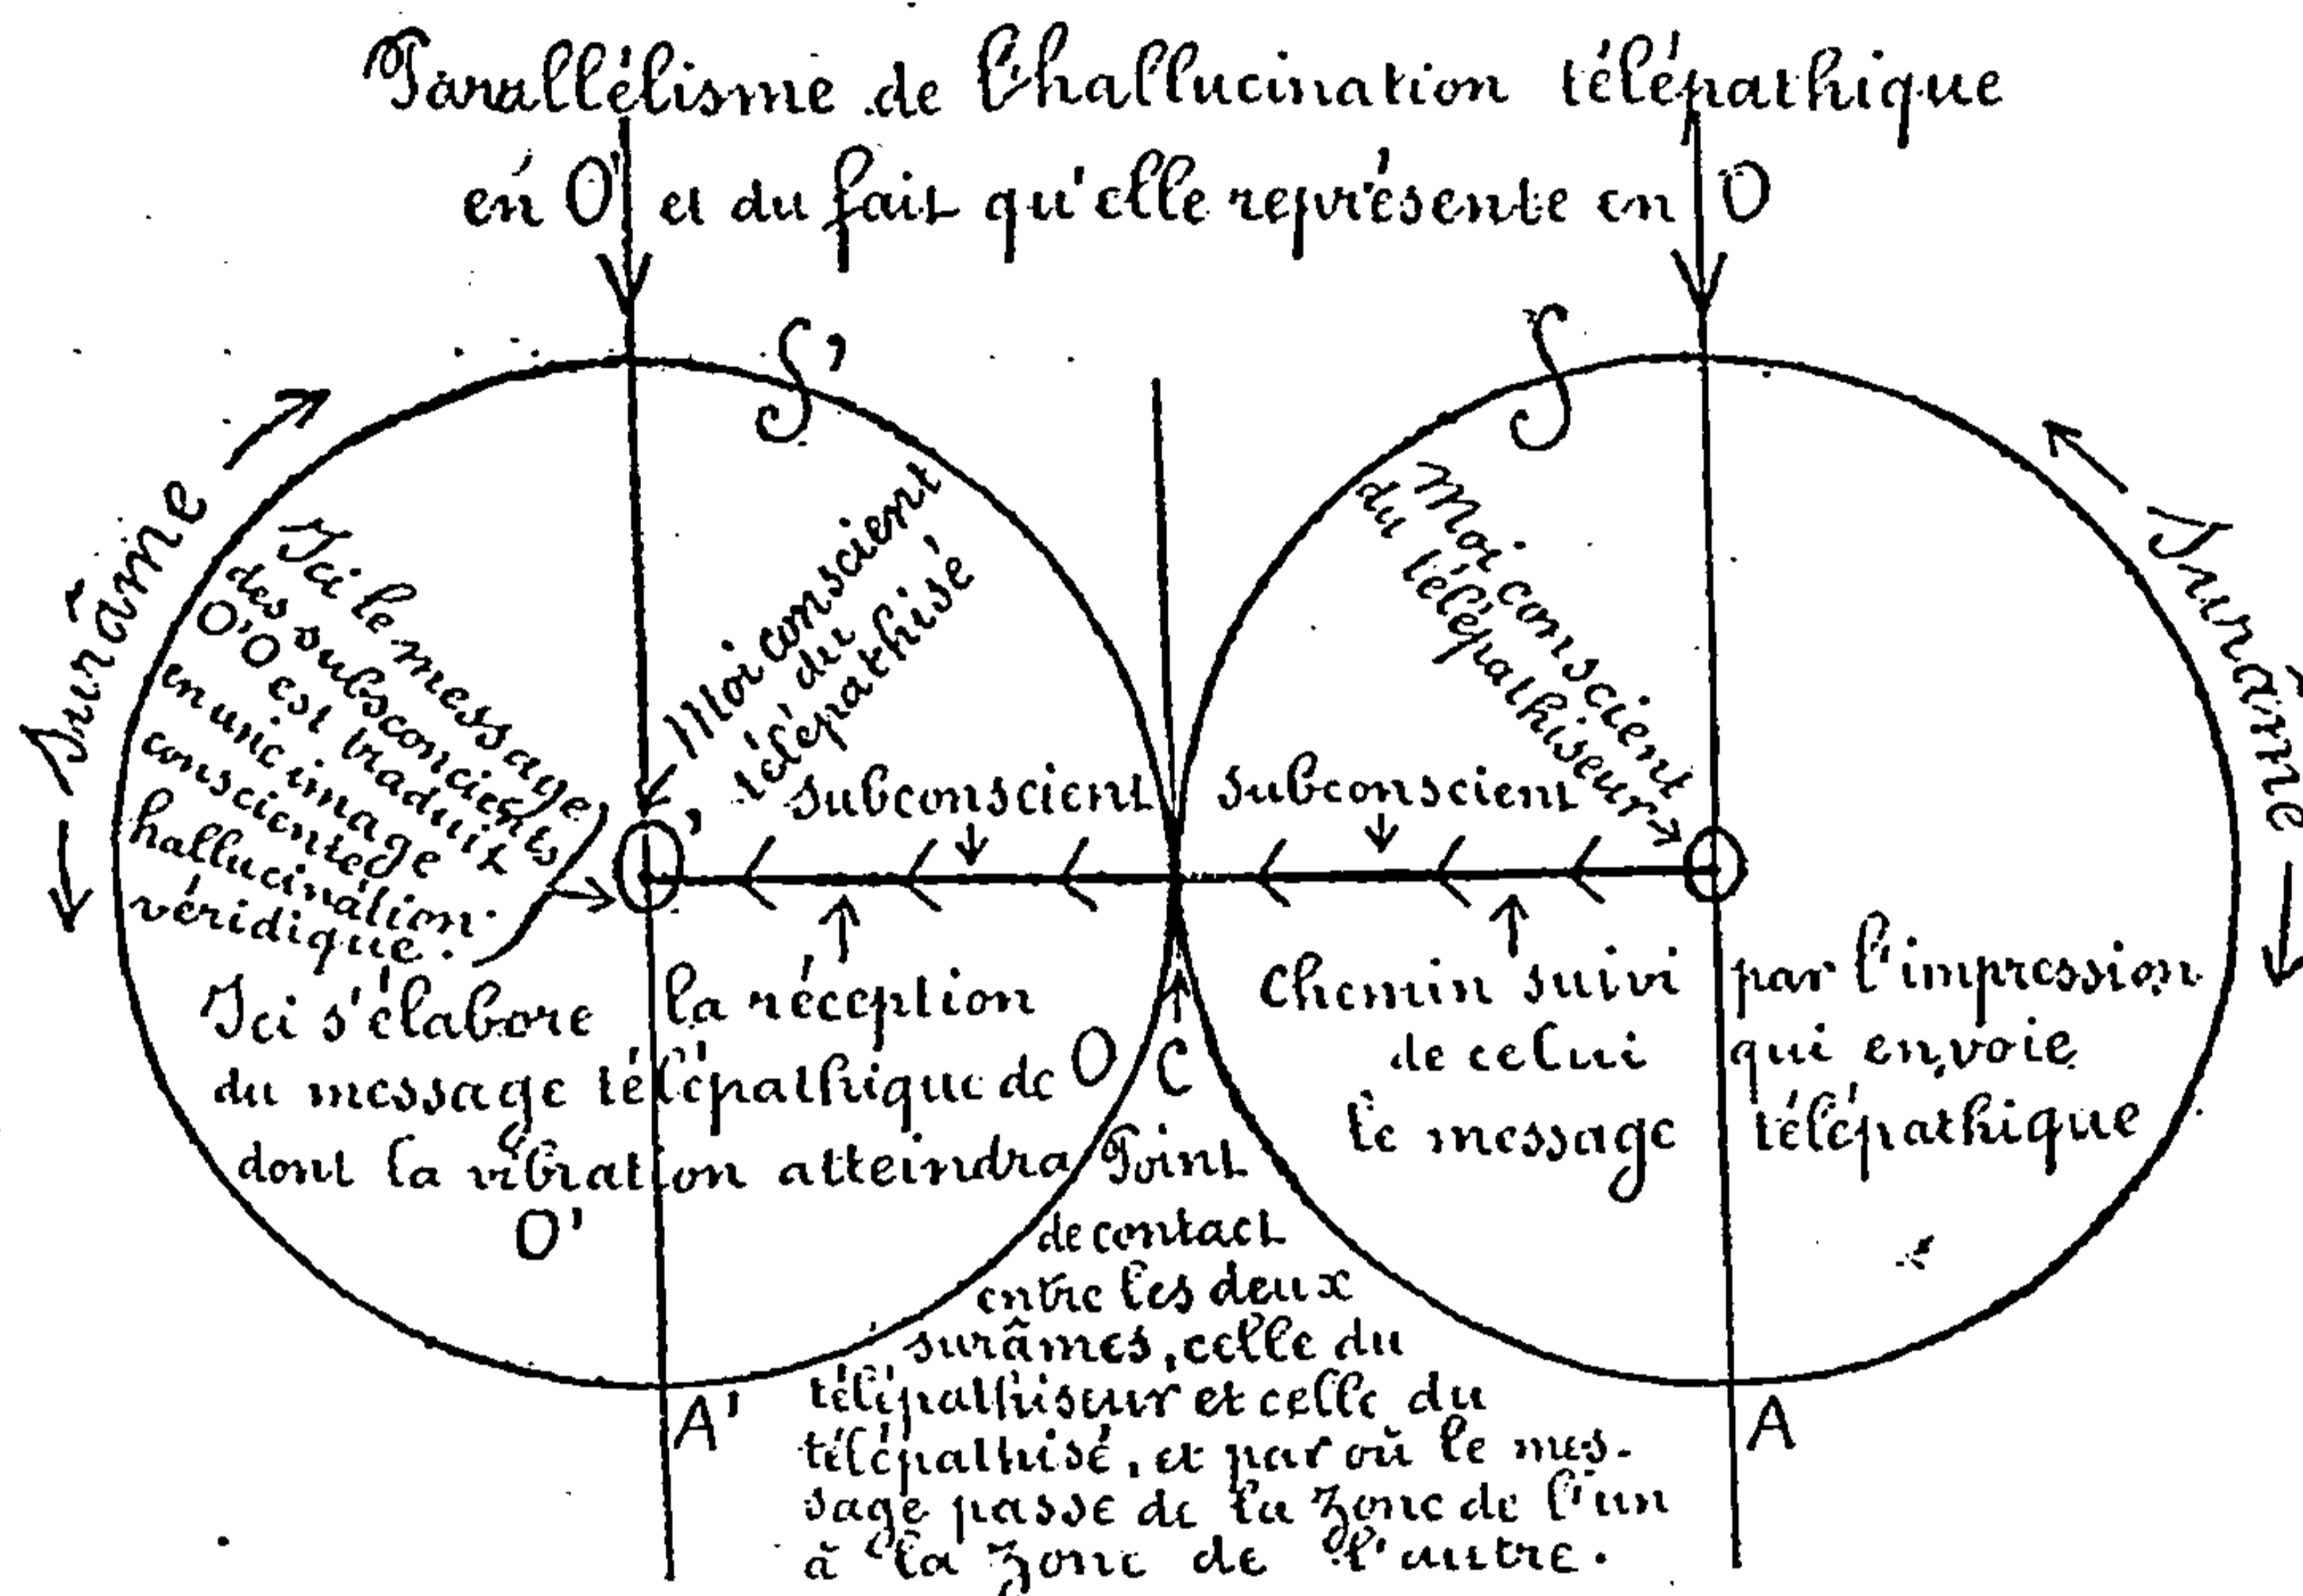 Parallélisme de l'hallucination télépathique
en O' et du fait qu'elle représente en O
S'
S
Surâme
Surâme
Ici le message
des subsconcients
O'O est traduit
en une image
consciente
hallucination
véridique.
Moi conscient
du
télépathisé
Moi conscient
du télépathiseur
subconscient
subconscient
O'
O
Ici s'élabore la réception
du message télépathique de O
dont la vibration atteindra
O'
Chemin suivi par l'impression
de celui qui envoie
le message télépathique
C
Point
de contact
entre les deux
surâmes, celle du
télépathiseur et celle du
télépathisé, et par où le mes-
sage passe de la zone de l'un
à la zone de l'autre.
A'
A